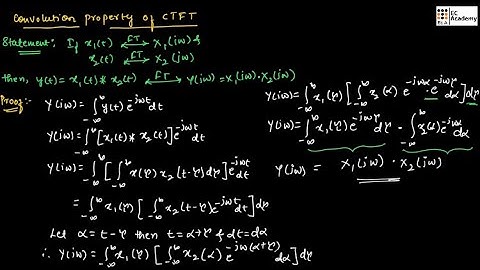 Convolution property of CTFT
EC Academy
ECA
Statement:- If x₁(t) ⟷FT X₁(jω) &
x₂(t) ⟷FT X₂(jω)
then, y(t) = x₁(t) * x₂(t) ⟷FT Y(jω) = X₁(jω)·X₂(jω)
Proof:- Y(jω) = ∫_{-∞}^{∞} y(t) e^{-jωt} dt
Y(jω) = ∫_{-∞}^{∞} [x₁(t) * x₂(t)] e^{-jωt} dt
Y(jω) = ∫_{-∞}^{∞} [∫_{-∞}^{∞} x(τ) x₂(t-τ) dτ] e^{-jωt} dt
= ∫_{-∞}^{∞} x₁(τ) [∫_{-∞}^{∞} x₂(t-τ) e^{-jωt} dt] dτ
Let α = t-τ then t = α+τ & dt = dα
∴ Y(jω) = ∫_{-∞}^{∞} x₁(τ) [∫_{-∞}^{∞} x₂(α) e^{-jω(α+τ)} dα] dτ
Y(jω) = ∫_{-∞}^{∞} x₁(τ) [∫_{-∞}^{∞} x₂(α) e^{-jωα} · e^{-jωτ} dα] dτ
Y(jω) = ∫_{-∞}^{∞} x₁(τ) e^{-jωτ} dτ · ∫_{-∞}^{∞} x₂(α) e^{-jωα} dα
Y(jω) = X₁(jω) · X₂(jω)